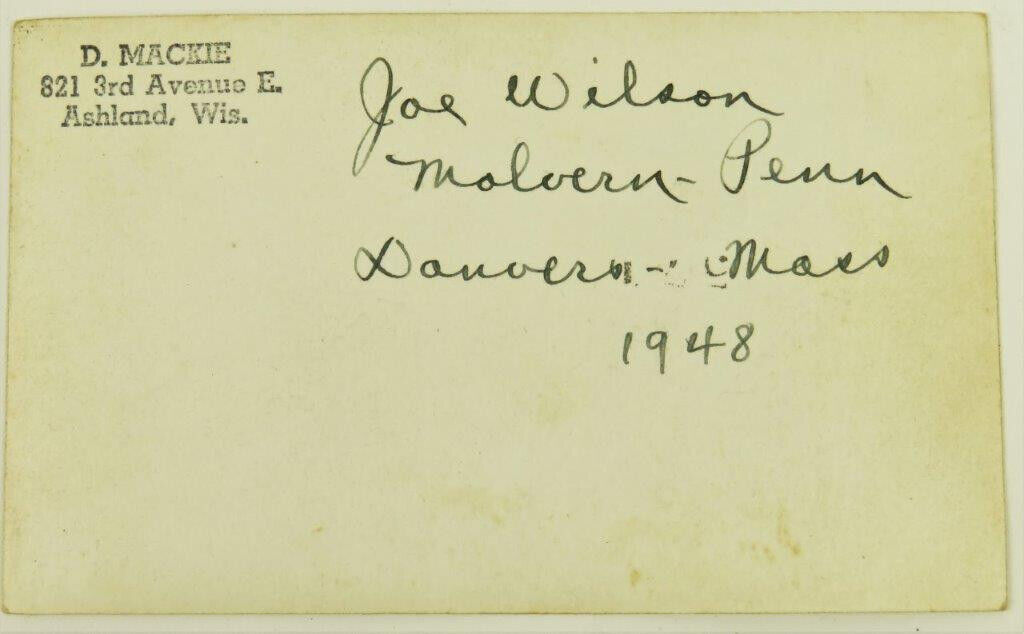 D. MACKIE
821 3rd Avenue E.
Ashland, Wis.
Joe Wilson
Malvern - Penn
Danvers - Mass
1948